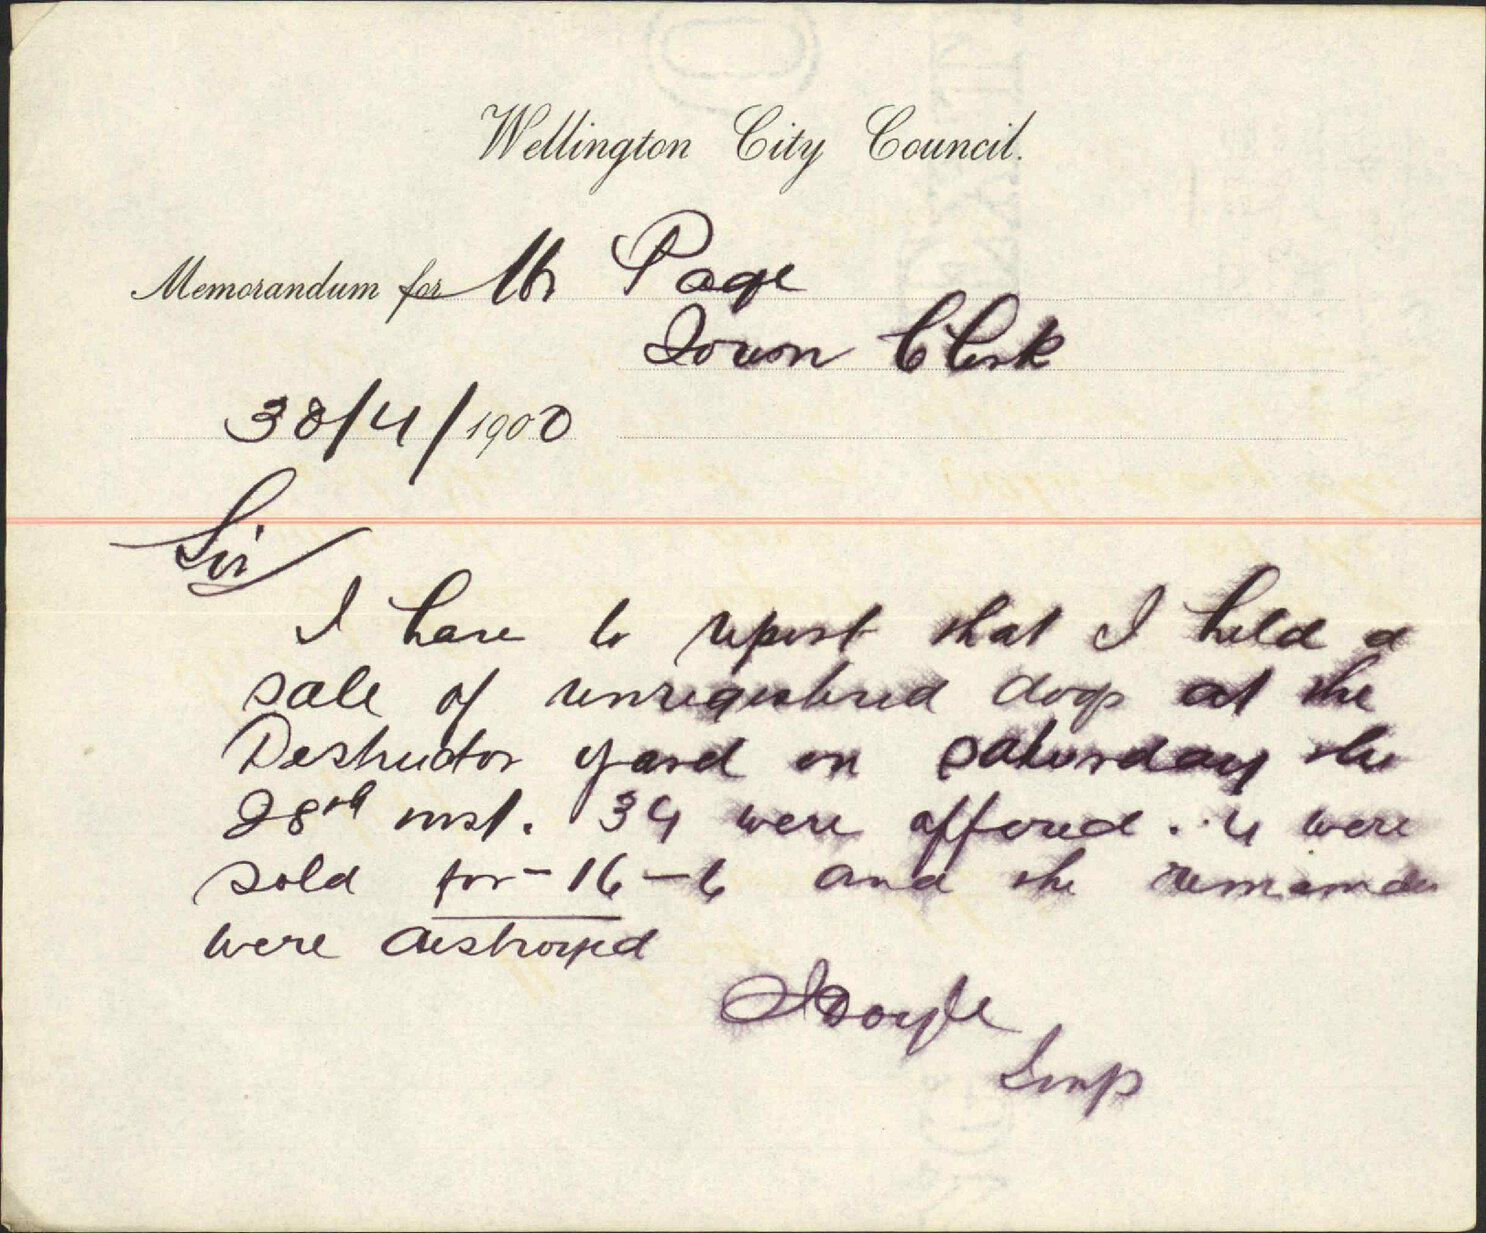 Wellington City Council.
Memorandum for Mr Page
Town Clerk
30/4/1900
Sir
I have to report that I held a
sale of unregistered dogs at the
Destructor yard on Saturday the
28th inst. 34 were offered. 4 were
sold for - 16 - 6 and the remainder
were destroyed
J Doyle
Insp